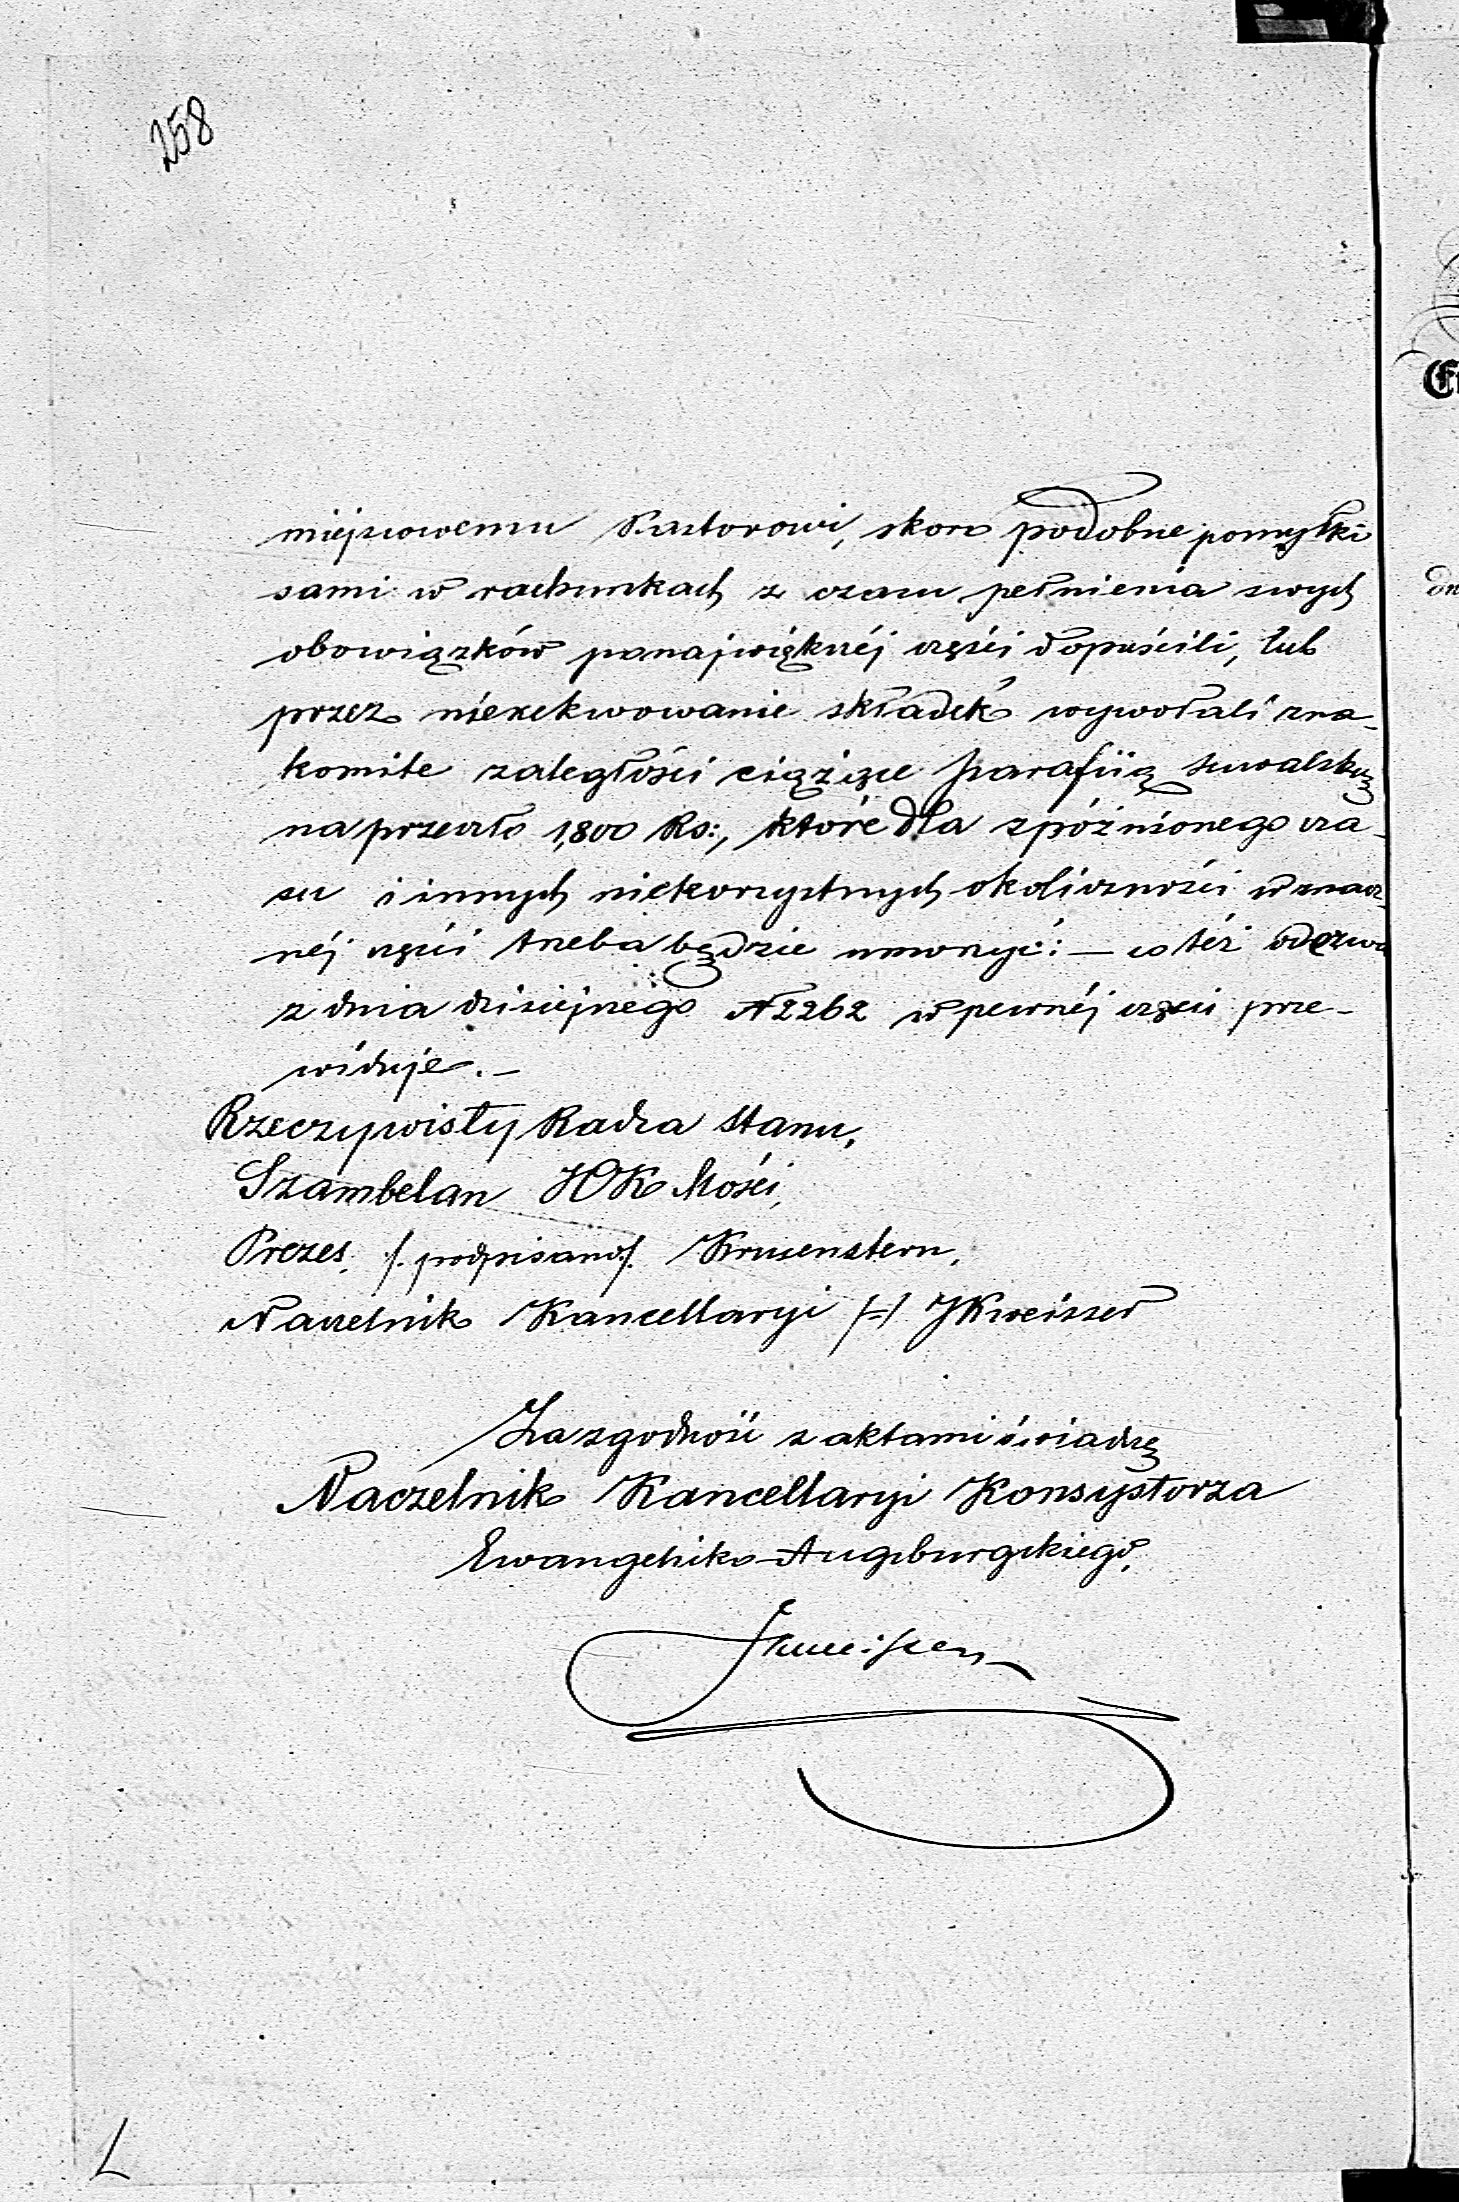 258
miejscowemu Pastorowi, skoro podobne pomyłki
sami w rachunkach z czasu pełnienia swych
obowiązków ponajwiększéj części dopuścili, lub
przez nieexekwowanie składek wywołali zna-
komite zaległości ciążące parafiią suwalską
na przeszło 1,800 Rs:, które dla spóźnionego cza-
su i innych niekorzystnych okoliczności w znacz-
néj części trzeba będzie umorzyć: — co też odezwa
z dnia dzisiejszego N 2262 w pewnéj części prze-
widuje. —
Rzeczywisty Radca Stanu,
Szambelan JCK Mości,
Prezes /. podpisano ./. Krusenstern,
Naczelnik Kancellaryi /=/
Za zgodność z aktami świadczę
Naczelnik Kancellaryi Konsystorza
Ewangelicko-Augsburgskiego,
L